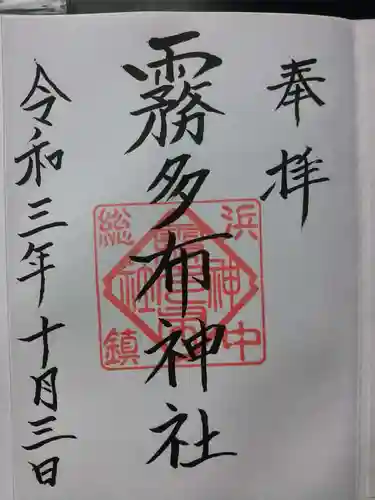 奉拝
霧多布神社
令和三年十月三日
浜中
総鎮
神社